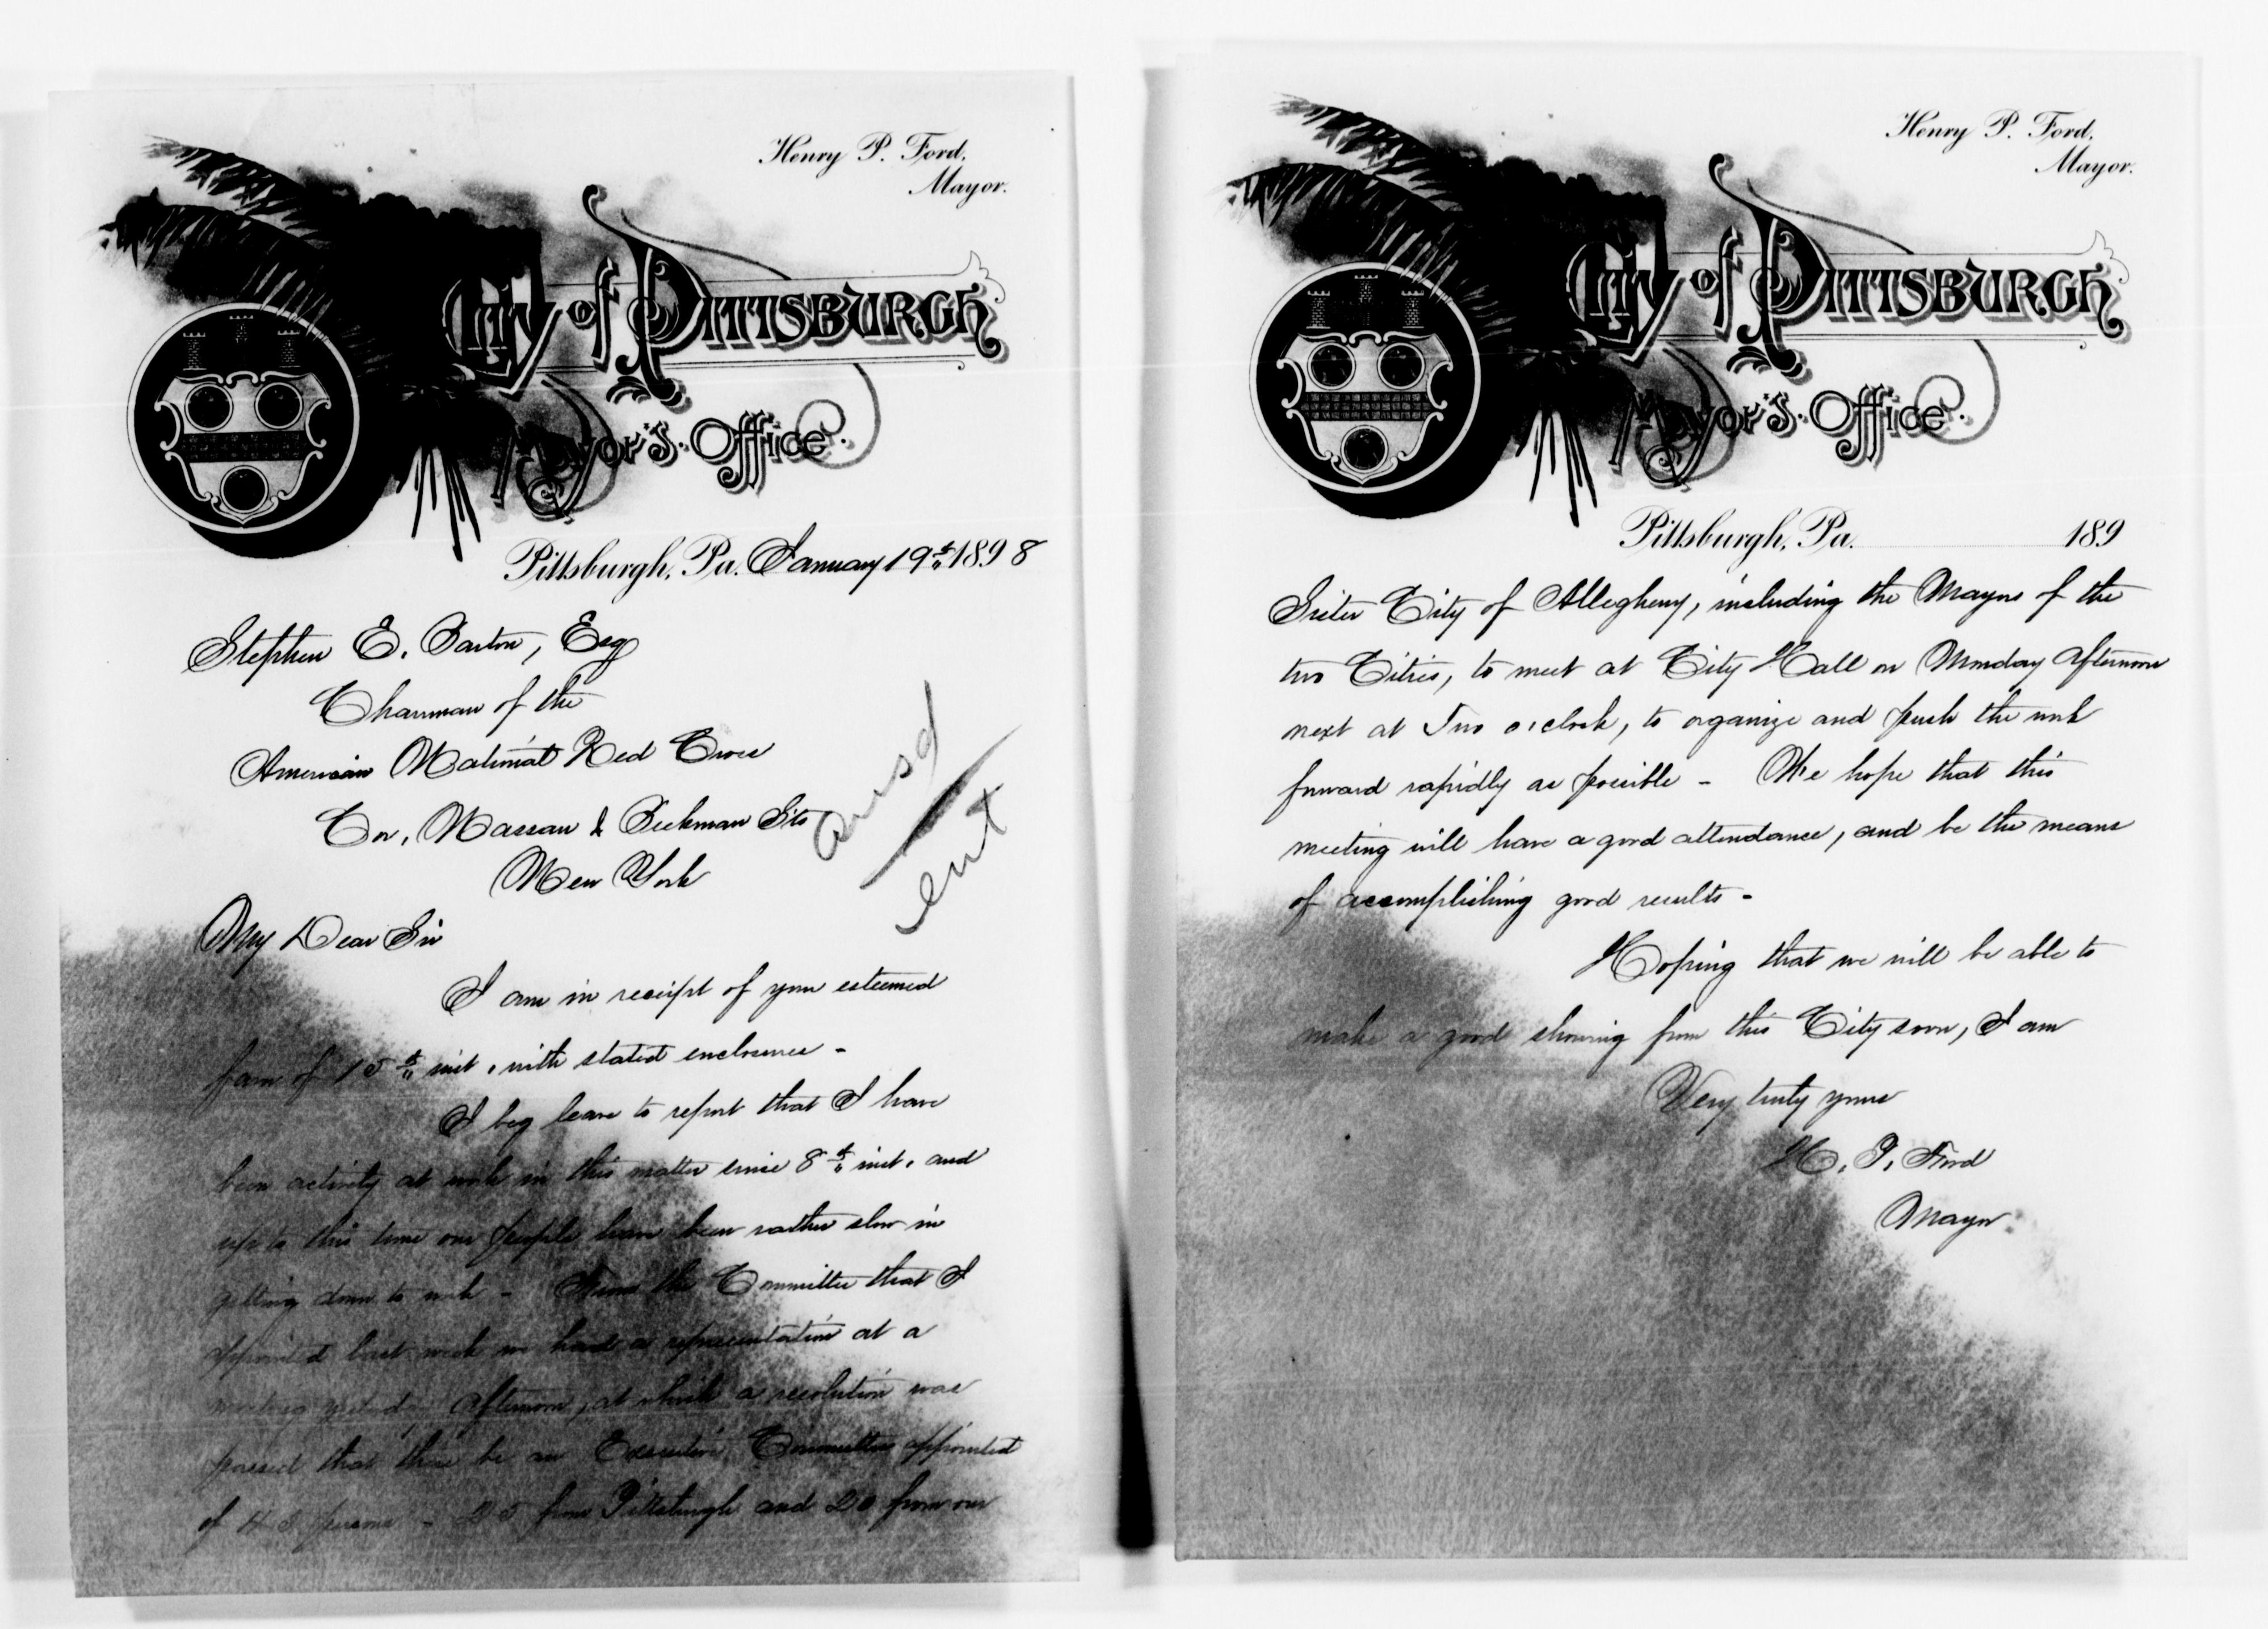 Henry P. Ford,
Mayor.
City of Pittsburgh
Mayor's Office.
Pittsburgh, Pa. January 19th 1898
Stephen E. Barton, Esq
Chairman of the
American National Red Cross
Cor, Nassau & Beekman Sts
New York
ansd
ent
My Dear Sir
I am in receipt of your esteemed
favor of 15th inst, with stated enclosures -
I beg leave to report that I have
been actively at work in this matter since 8th inst, and
up to this time our people have been rather slow in
getting down to work - From the Committee that I
appointed last week we had a representation at a
meeting yesterday afternoon, at which a resolution was
passed that there be an Executive Committee appointed
of 45 persons - 25 from Pittsburgh and 20 from our
Henry P. Ford,
Mayor.
City of Pittsburgh
Mayor's Office.
Pittsburgh, Pa. 189
Sister City of Allegheny, including the Mayors of the
two Cities, to meet at City Hall on Monday afternoon
next at Two o'clock, to organize and push the work
forward rapidly as possible - We hope that this
meeting will have a good attendance, and be the means
of accomplishing good results -
Hoping that we will be able to
make a good showing from this City soon, I am
Very truly yours
H. P. Ford
Mayor